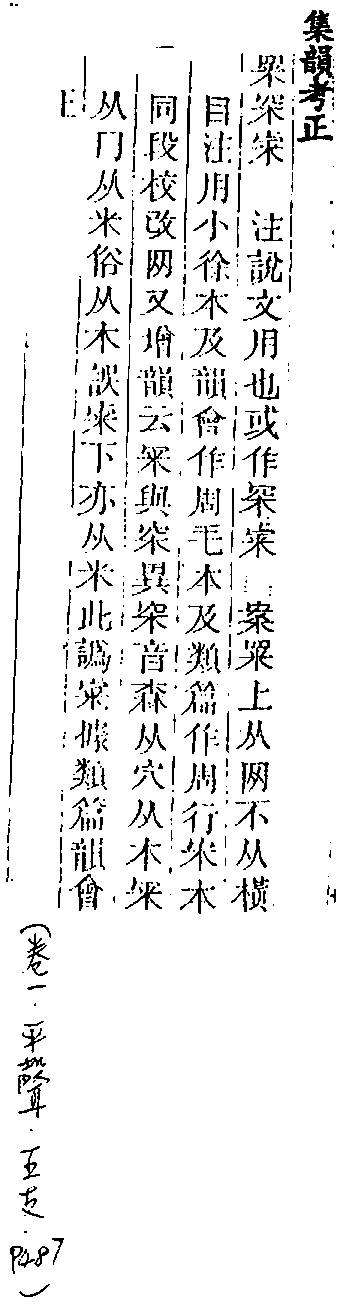 集韻考正
罙寀 注說文用也或作罙寀 案冞上从网不从橫
目注用小徐本及韻會作周毛本及類篇作周行宋本
同段校改网又增韻云冞與罙異罙音森从穴从木冞
从冂从米俗从木誤寀下亦从米此譌寀據類篇韻會
正
(卷一.平聲.五支.P487)